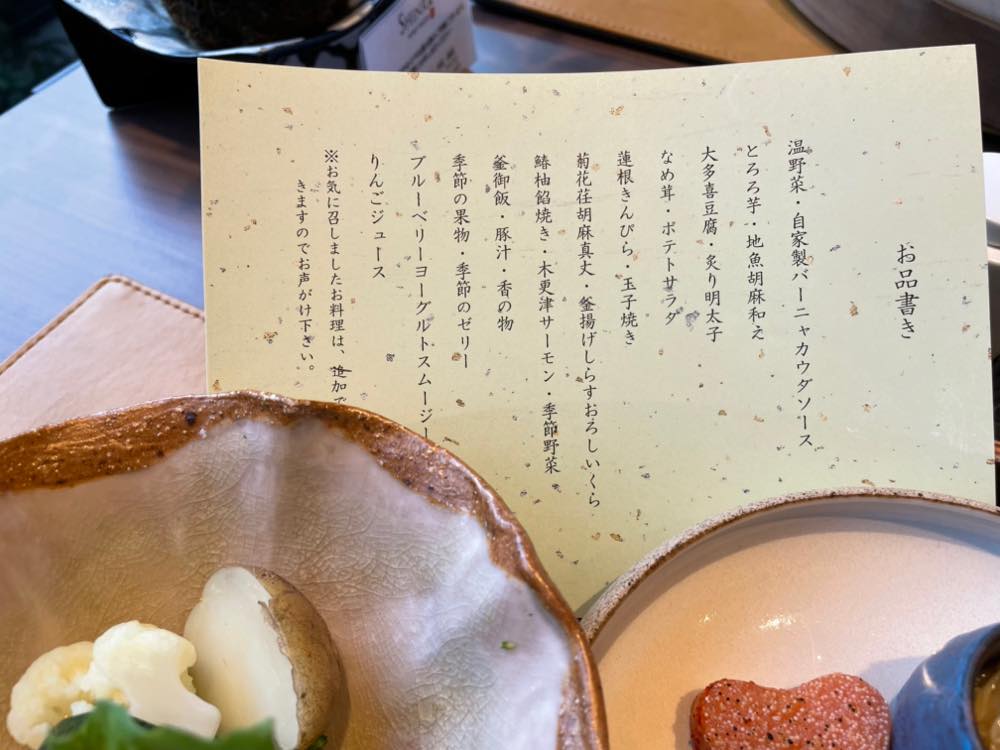 お品書き
温野菜・自家製バーニャカウダソース
とろろ芋・地魚胡麻和え
大多喜豆腐・炙り明太子
なめ茸・ポテトサラダ
蓮根きんぴら・玉子焼き
菊花荏胡麻真丈・釜揚げしらすおろしいくら
鰆柚餡焼き・木更津サーモン・季節野菜
釜御飯・豚汁・香の物
季節の果物・季節のゼリー
ブルーベリーヨーグルトスムージー
りんごジュース
※お気に召しましたお料理は、追加で
きますのでお声がけ下さい。